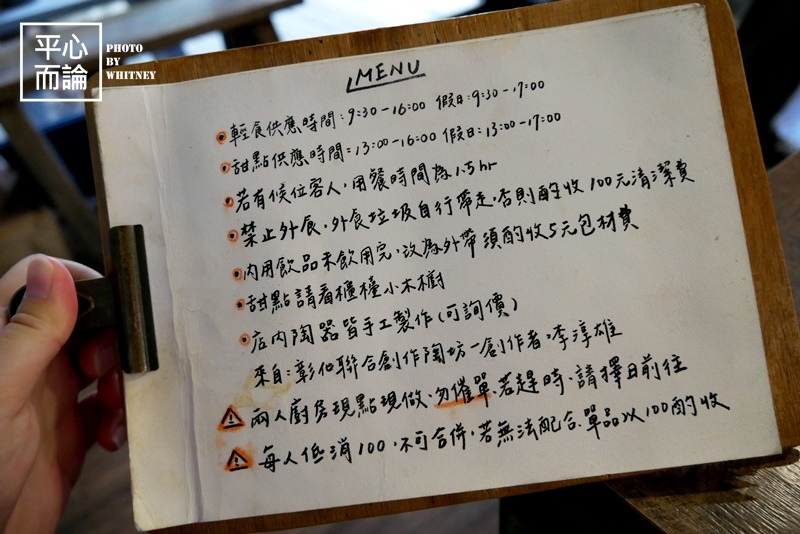 平心
而論
PHOTO
BY
WHITNEY
MENU
輕食供應時間：9:30-16:00 假日：9:30-17:00
甜點供應時間：13:00-16:00 假日：13:00-17:00
若有候位客人，用餐時間為1.5hr
禁止外食，外食垃圾自行帶走，否則酌收100元清潔費
內用飲品未飲用完，改為外帶須酌收5元包材費
甜點請看櫃檯小木樹
店內陶器皆手工製作(可詢價)
來自：彰化聯合創作陶坊－創作者：李淳雄
兩人廚房現點現做，勿催單，若趕時，請擇日前往
每人低消100，不可合併，若無法配合，單品以100酌收